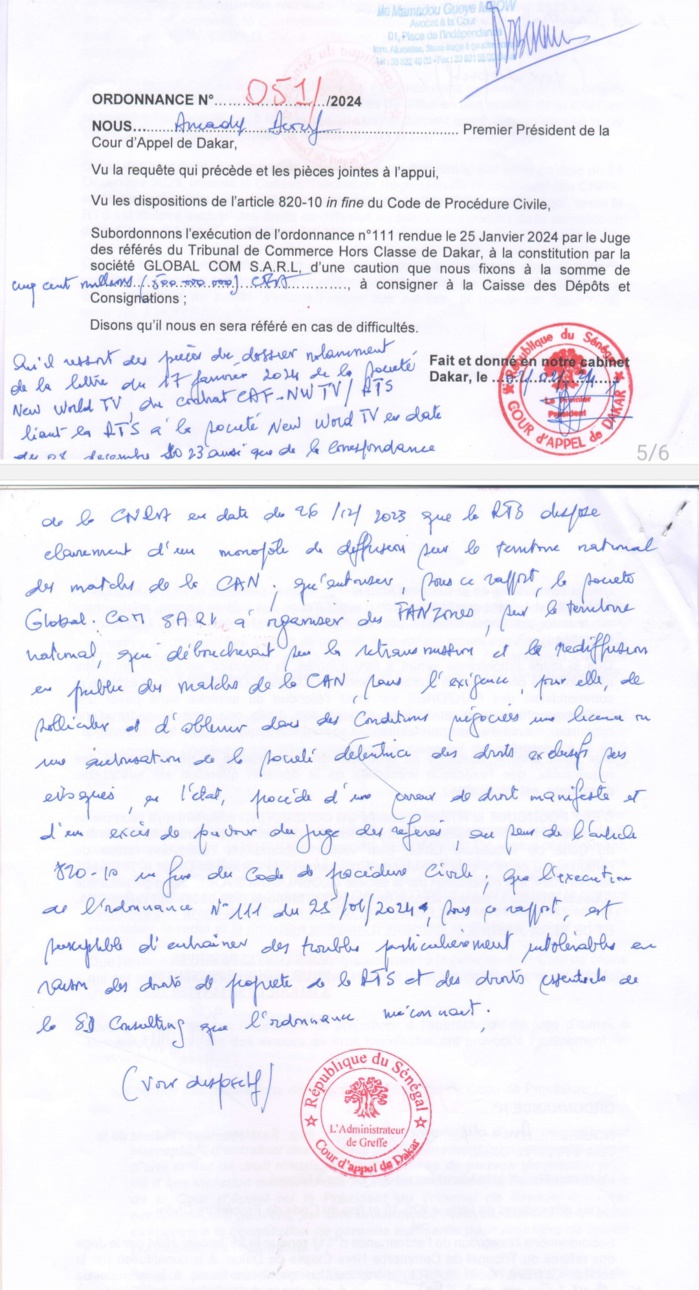 Me Mamadou Gueye MBOW
Avocat à la Cour
01, Place de l'Indépendance
ORDONNANCE N°... 051/ /2024
NOUS... Amady Diouf ... Premier Président de la
Cour d'Appel de Dakar,
Vu la requête qui précède et les pièces jointes à l'appui,
Vu les dispositions de l'article 820-10 in fine du Code de Procédure Civile,
Subordonnons l'exécution de l'ordonnance n°111 rendue le 25 Janvier 2024 par le Juge
des référés du Tribunal de Commerce Hors Classe de Dakar, à la constitution par la
société GLOBAL COM S.A.R.L, d'une caution que nous fixons à la somme de
cinq cent millions (500.000.000) CFA ..., à consigner à la Caisse des Dépôts et
Consignations ;
Disons qu'il nous en sera référé en cas de difficultés.
Qu'il ressort des pièces du dossier notamment
de la lettre du 17 janvier 2024 de la société
New World TV, du contrat CAF-NWTV/RTS
liant la RTS à la société New Word TV en date
du 08 decembre 2023 ainsi que de la correspondance
Fait et donné en notre cabinet
Dakar, le
République du Sénégal
Le Premier
Président
COUR d'APPEL de DAKAR
5/6
de la CNRA en date du 26/12/2023 que la RTS dispose
clairement d'un monopole de diffusion sur le territoire national
des matches de la CAN ; qu'autoriser, sous ce rapport, la societé
Global.COM SARL à organiser des FANZONES, sur le territoire
national, que déboucherait sur la retransmission et la rediffusion
en public des matches de la CAN, sans l'exigence, pour elle, de
solliciter et d'obtenir dans des conditions négociées une licence ou
une autorisation de la société détentrice des droits exclusifs sus
évoqués, en l'état, procède d'une erreur de droit manifeste et
d'un excès de pouvoir du juge des référés, au sens de l'article
820-10 in fine du Code de procédure Civile ; que l'execution
de l'ordonnance N°111 du 25/01/2024, sous ce rapport, est
susceptible d'entraîner des troubles particulièrement intolérables en
raison des droits de propriété de la RTS et des droits essentiels de
la SD Consulting que l'ordonnance méconnait ;
(Voir dispositif)
République du Sénégal
L'Administrateur
de Greffe
Cour d'appel de Dakar